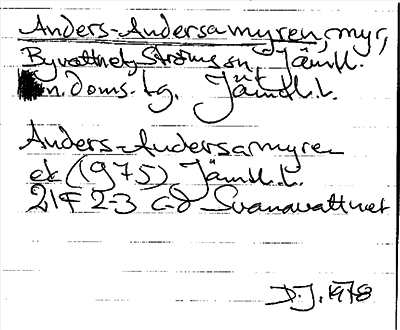 Anders-Andersamyren, myr,
Byvattnet, Ströms sn, Jämtl.
n. doms. lg. Jämtl. l.
Anders-Andersamyren
ek (1975) Jämtl. l.
21F 2-3 c-d Svanavattnet
D.J. 1978